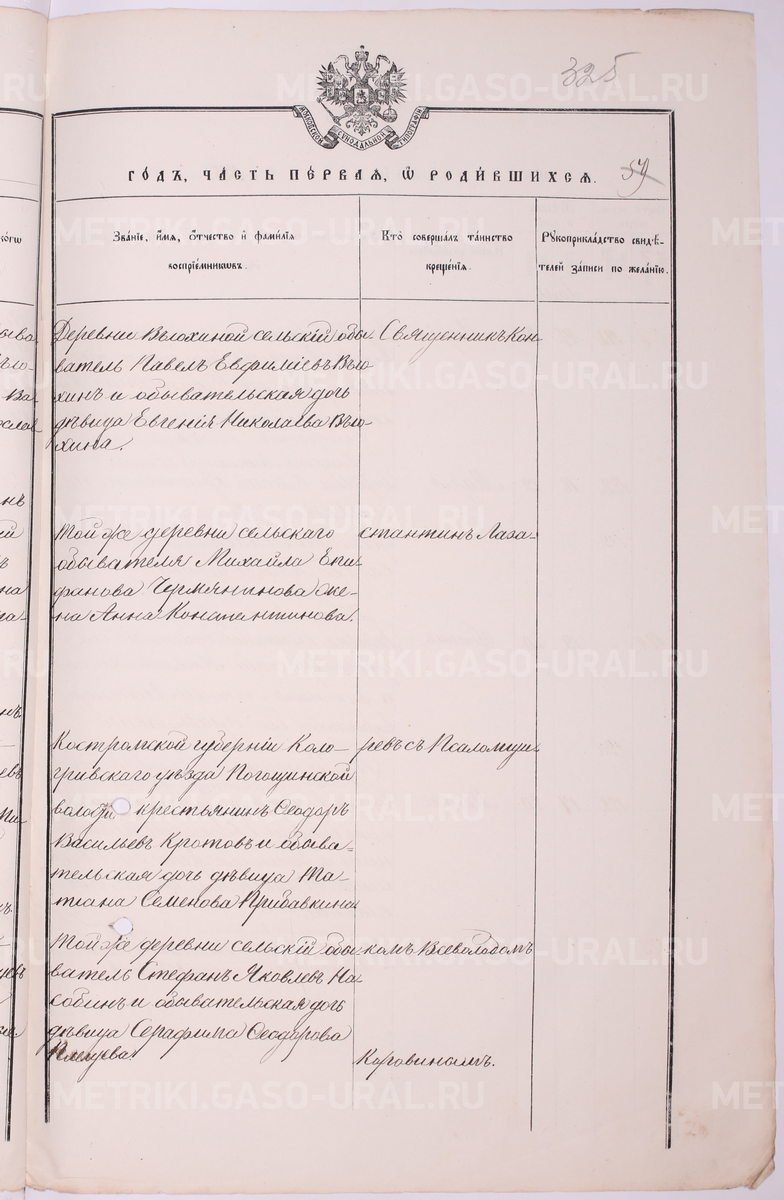 325
МОСКОВСКОЙ СѴНОДАЛЬНОЙ ТИПОГРАФІИ
ГО́ДЪ, ЧА́СТЬ ПЕ́РВАЯ, Ѡ҆ РОДИ́ВШИХСѦ.
59
Зва́нїе, и҆́мѧ, ѻ҆́тчество и҆ фами́лїѧ
воспрїе́мниковъ.
Кто̀ соверша́лъ та́инство
креще́нїѧ.
Рꙋкоприкла́дство свидѣ́-
телей за́писи по жела́нїю.
Деревни Вьюхиной сельскій обы-
ватель Павелъ Евфиміевъ Вью-
хинъ и обывательская дочь
дѣвица Евгенія Николаева Вью-
хина.
Священникъ Кон-
Той же деревни сельскаго
обывателя Михаила Епи-
фанова Чермянинова же-
на Анна Константинова.
стантинъ Лаза-
Костромской губерніи Коло-
гривскаго уѣзда Погощинской
волости крестьянинъ Ѳеодоръ
Васильевъ Кротовъ и обыва-
тельская дочь дѣвица Та-
тіана Семенова Прибавкина
ревъ съ Псаломщи-
Той же деревни сельскій обы-
ватель Стефанъ Яковлевъ На-
собинъ и обывательская дочь
дѣвица Серафима Ѳеодорова
комъ Всеволодомъ
Коровинымъ.
METRIKI.GASO-URAL.RU